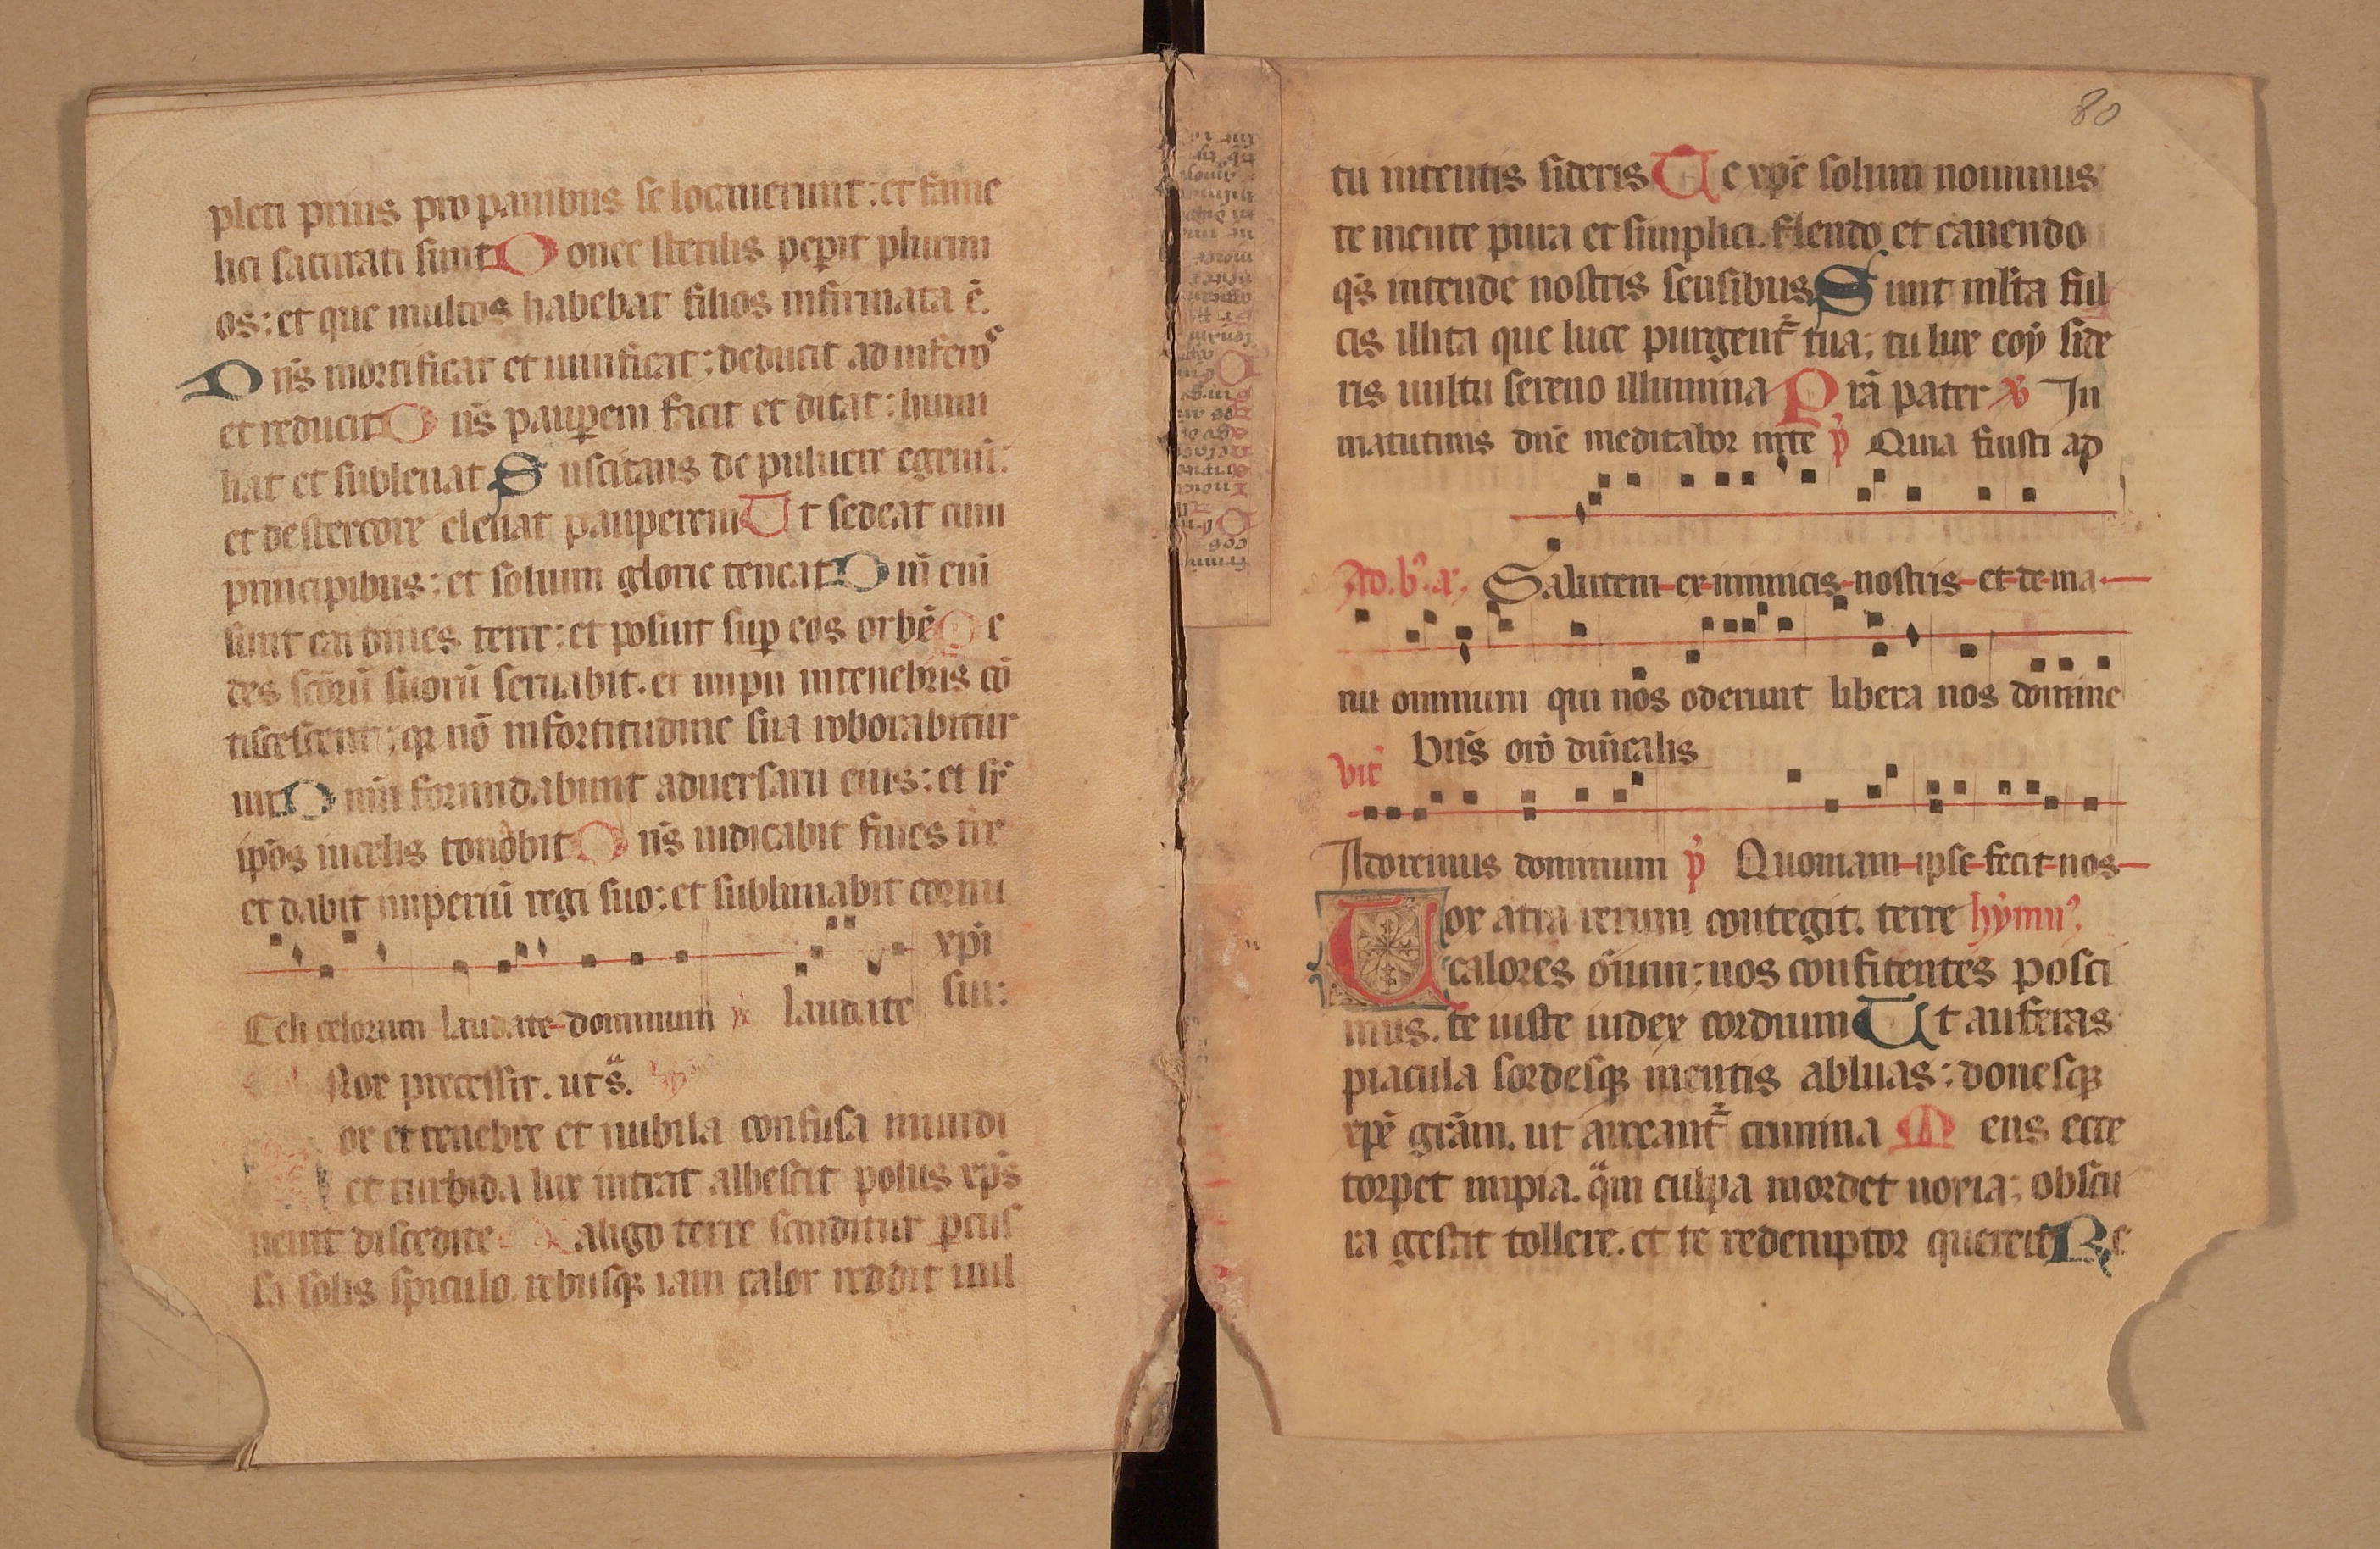 pleti prius pro panibus se locauerunt: et fame
lici saturati sunt Donec sterilis peperit plurim
os: et que multos habebat filios infirmata ē.
Dn̄s mortificat et uiuificat: deducit ad inferos
et reducit Dn̄s paup̄em facit et ditat: humi
liat et subleuat Suscitans de puluere egenū:
et de stercore eleuat pauperem Ut sedeat cum
principibus: et solium glorie teneat Dn̄i eni
sunt cardines terre: et posuit sup̄ eos orbē Pe
des sc̄orū suorū seruabit. et impii in tenebris cō
ticescent: q̄ꝫ nō in fortitudine sua roborabitur
uir Dn̄m formidabunt aduersarii eius: et sr̄
ip̄os in celis tonabit Dn̄s iudicabit fines tr̄e
et dabit imperiū regi suo: et sublimabit cornu
xp̄i
sui:
Celi celorum laudate dominum laudate
Nox precessit. ut s̄.
ox et tenebre et nubila confusa mundi
et turbida lux intrat albescit polus xp̄s
uenit discedite Caligo terre scinditur p̄cus
sa solis spiculo. rebusqꝫ iam calor reddit uul
80
tu nitentis sideris Te xp̄e solum nouimus
te mente pura et simplici. flendo et canendo
q̄s intende nostris sensibus Sunt ml̄ta fu
cis illita que luce purgent᷑ tua; tu lux eoꝝ side
ris uultu sereno illumina P rā pater ℣ In
matutinis dn̄e meditabor in te p̄ Quia fuisti ad
Ad. b᷑. a᷑. Salutem ex inimicis nostris et de ma
nu omnium qui nos oderunt libera nos domine
Vn̄s or̄o dn̄icalis
vit᷑
Adoremus dominum p̄ Quoniam ipse fecit nos
Nox atra rerum contegit. terre hymn᷒.
calores ōium; nos confitentes posci
mus. te iuste iudex cordium Ut auferas
piacula sordesqꝫ mentis abluas: donesqꝫ
xp̄e grām. ut arceant᷑ crimina Mens ecce
torpet impia. q̄m culpa mordet noxia; obscu
ra gestit tollere. et te redemptor querere Re